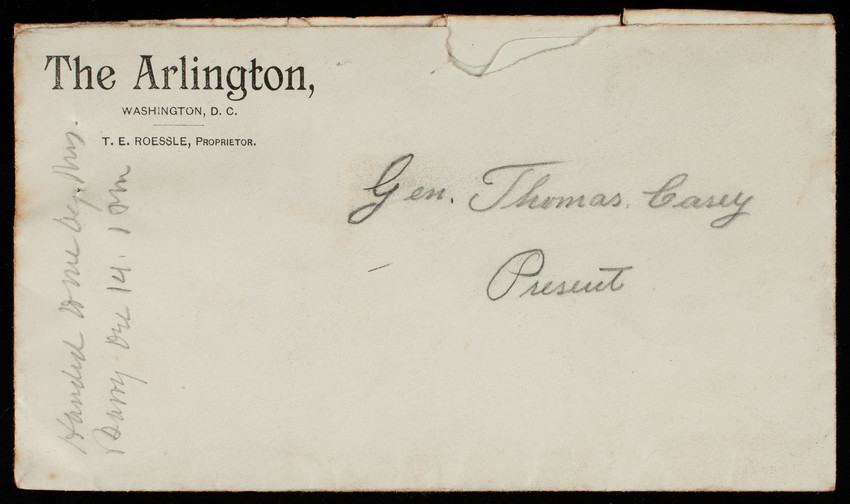 The Arlington,
WASHINGTON, D. C.
T. E. ROESSLE, PROPRIETOR.
Gen. Thomas. Casey
Present
Handed me by Mrs.
Barry Dec 14. 1 Pm